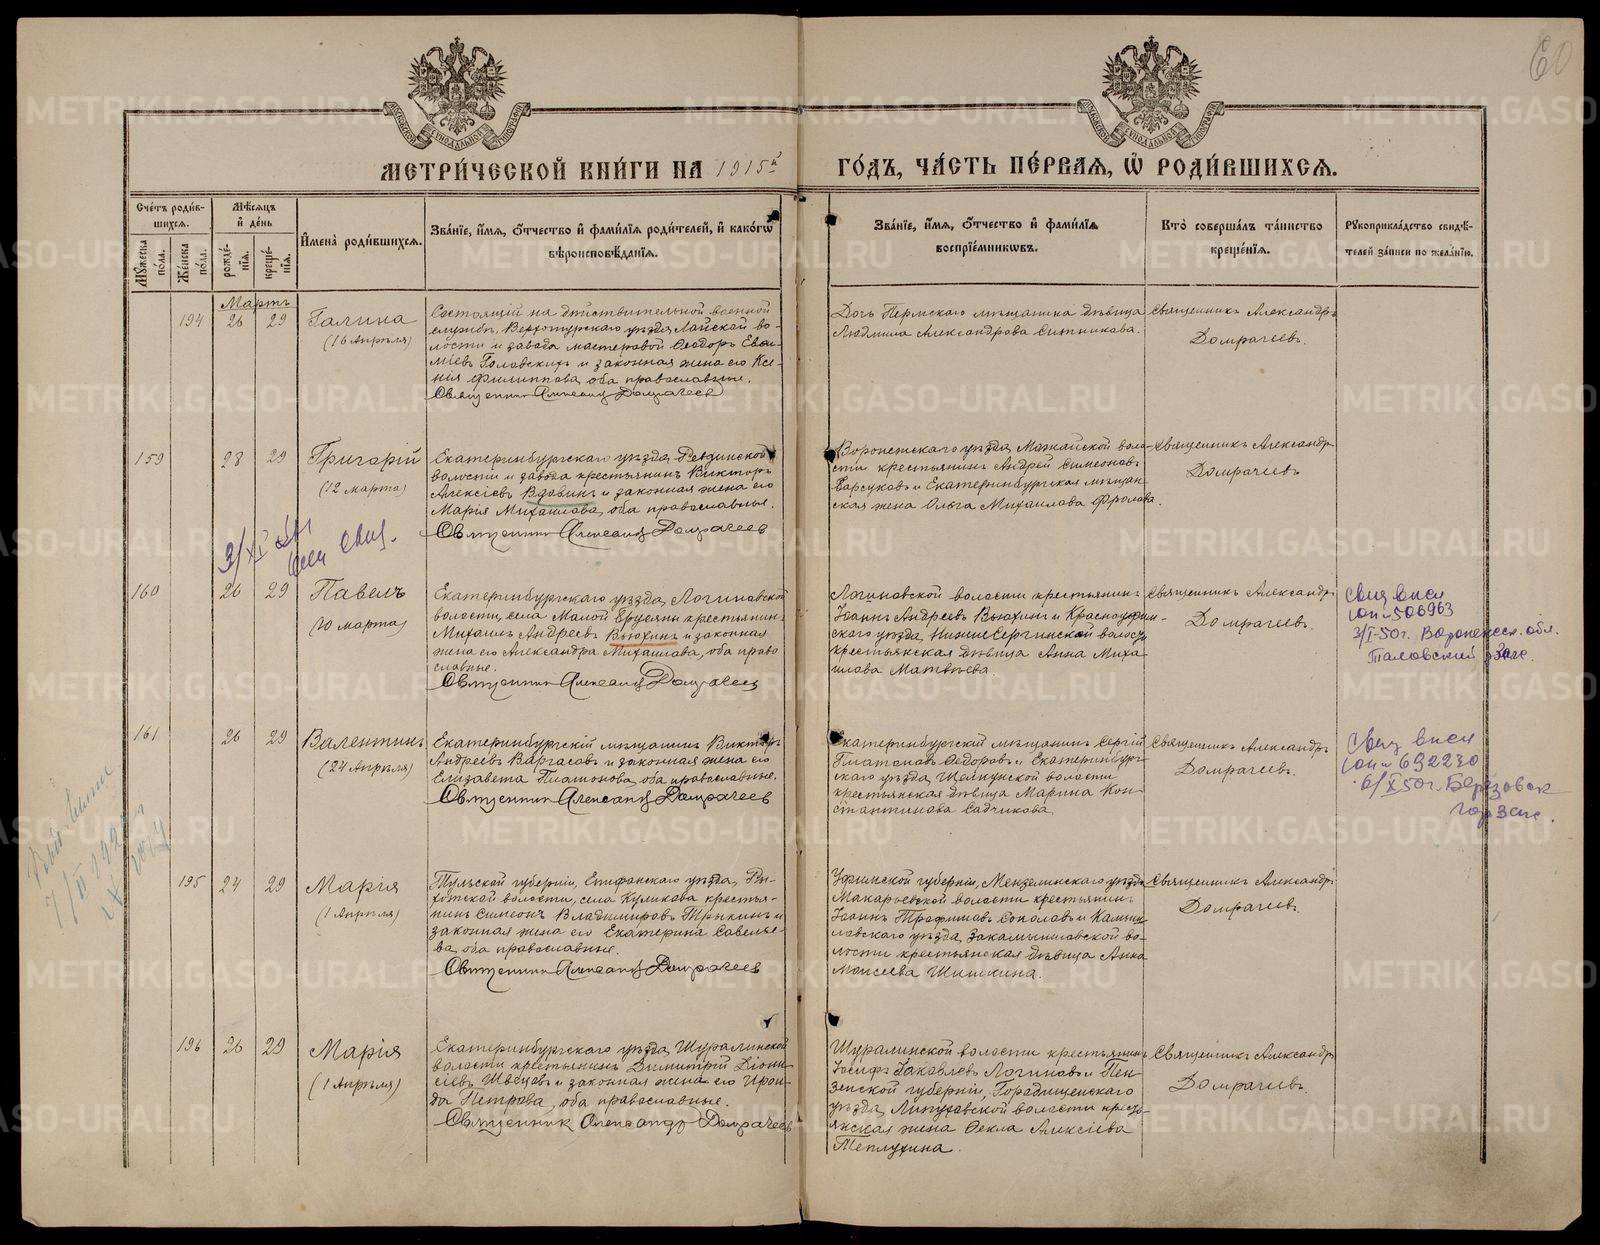 60
МЕТРИЧЕСКОЙ КНИГИ НА 1915й ГОДЪ, ЧАСТЬ ПЕРВАЯ, Ѡ РОДИВШИХСЯ.
Счетъ родившихся.
Мужеска пола.
Женска пола.
Мѣсяцъ и день
рождения.
крещения.
Имена родившихся.
Званіе, имя, отчество и фамилія родителей, и какогѡ
вѣроисповѣданія.
Званіе, имя, отчество и фамилія
воспріемниковъ.
Кто совершалъ таинство
крещенія.
Рукоприкладство свидѣтелей записи по желанію.
Мартъ
194 26 29 Галина
(16 Апрѣля)
Состоящій на дѣйствительной военной
службѣ, Верхотурскаго уѣзда, Лайской во-
лости и завода мастеровой Ѳеодоръ Евѳи-
міевъ Головскихъ и законная жена его Ксе-
нія Филиппова, оба православные.
Священникъ Александръ Домрачеевъ
Дочь Пермскаго мѣщанина дѣвица
Людмила Александрова Ситникова.
Священникъ Александръ
Домрачеевъ.
159 28 29 Григорій
(12 марта)
Екатеринбургскаго уѣзда, Ревдинской
волости и завода крестьянинъ Викторъ
Алексіевъ Вдовинъ и законная жена его
Марія Михаилова, оба православные.
Священникъ Александръ Домрачеевъ
крестьянинъ Андрей Симеоновъ
Барсуковъ и Екатеринбургская мѣщан-
ская жена Ольга Михаилова Фролова.
Священникъ Александръ
Домрачеевъ
160 26 29 Павелъ
(10 марта)
Екатеринбургскаго уѣзда, Логиновской
волости, села Малой Брусяны крестьянинъ
Михаилъ Андреевъ Вьюхинъ и законная
жена его Александра Михаилова, оба право-
славные.
Священникъ Александръ Домрачеевъ
Логиновской волости крестьянинъ
Іоаннъ Андреевъ Вьюхинъ и Красноуфим-
скаго уѣзда, Нижне Сергинской волости
крестьянская дѣвица Анна Миха-
илова Матвѣева.
Священникъ Александръ
Домрачеевъ.
506963
3/I-50г. Воронежск. обл.
Таловский рЗагс.
161 26 29 Валентинъ
(24 Апрѣля)
Екатеринбургскій мѣщанинъ Викторъ
Андреевъ Варгасовъ и законная жена его
Елизавета Платонова, оба православные.
Священникъ Александръ Домрачеевъ
Екатеринбургскій мѣщанинъ Сергій
Платоновъ Ѳедоровъ и Екатеринбург-
скаго уѣзда, Щелкунской волости
крестьянская дѣвица Марина Кон-
стантинова Садчикова.
Священникъ Александръ
Домрачеевъ.
692230
6/X 50г. Берёзовск
горзагс.
195 24 29 Марія
(1 Апрѣля)
Тульской губерніи, Епифанскаго уѣзда,
волости, села Куликова крестья-
нинъ Симеонъ Владимировъ Трынкинъ и
законная жена его Екатерина Савелье-
ва, оба православные.
Священникъ Александръ Домрачеевъ
Уфимской губерніи, Мензелинскаго уѣзда,
Макарьевской волости крестьянинъ
Іоаннъ Трофимовъ Соколовъ и Камыш-
ловскаго уѣзда, Закамышловской во-
лости крестьянская дѣвица Анна
Моисеева Шишкина.
Священникъ Александръ
Домрачеевъ.
196 26 29 Марія
(1 Апрѣля)
Екатеринбургскаго уѣзда, Шуралинской
волости крестьянинъ Димитрій Діони-
сіевъ Швецовъ и законная жена его Ираи-
да Петрова, оба православные.
Священникъ Александръ Домрачеевъ
Шуралинской волости крестьянинъ
Іосифъ Іаковлевъ Логиновъ и Пен-
зенской губерніи, Городищенскаго
уѣзда, Липуховской волости кресть-
янская жена Ѳекла Алексіева
Теплухина.
Священникъ Александръ
Домрачеевъ.
METRIKI.GASO-URAL.RU